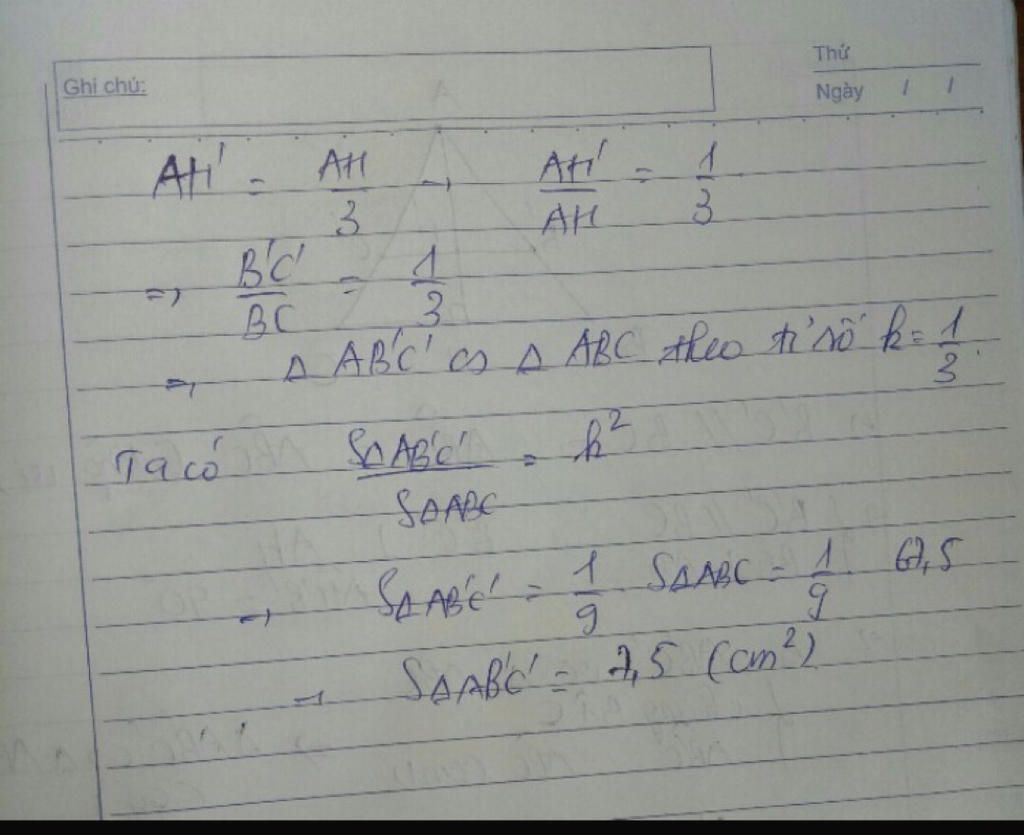 Ghi chú:
Thứ
Ngày / /
AH' = AH/3 → AH'/AH = 1/3
⇒ B'C'/BC = 1/3
⇒ Δ AB'C' ∽ Δ ABC theo tỉ số k = 1/3.
Ta có SΔAB'C'/SΔABC = k²
→ SΔAB'C' = 1/9 SΔABC = 1/9 . 67,5
→ SΔAB'C' = 7,5 (cm²)